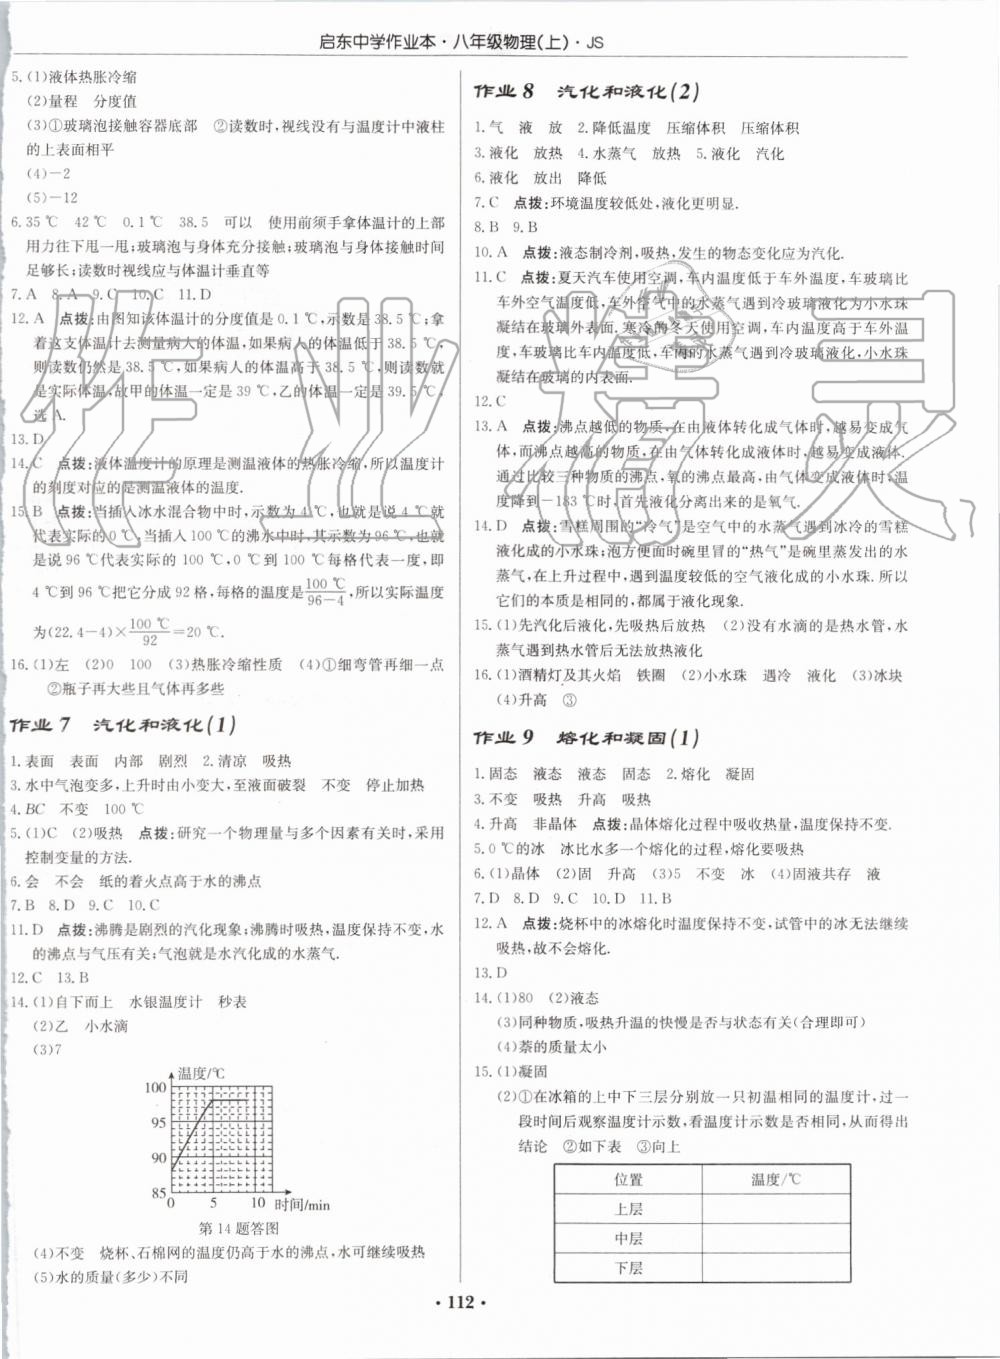 启东中学作业本·八年级物理(上)·JS
5.(1)液体热胀冷缩
(2)量程　分度值
(3)①玻璃泡接触容器底部　②读数时,视线没有与温度计中液柱
的上表面相平
(4)-2
(5)-12
6.35 ℃　42 ℃　0.1 ℃　38.5　可以　使用前须手拿体温计的上部
用力往下甩一甩;玻璃泡与身体充分接触;玻璃泡与身体接触时间
足够长;读数时视线应与体温计垂直等
7.A　8.A　9.C　10.C　11.D
12.A　点拨:由图知该体温计的分度值是0.1 ℃,示数是38.5 ℃;拿
着这支体温计去测量病人的体温,如果病人的体温低于38.5 ℃,
则读数仍然是38.5 ℃,如果病人的体温高于38.5 ℃,则读数就
是实际体温,故甲的体温一定是39 ℃,乙的体温一定是39.5 ℃,
选A.
13.D
14.C　点拨:液体温度计的原理是测温液体的热胀冷缩,所以温度计
的刻度对应的是测温液体的温度.
15.B　点拨:当插入冰水混合物中时,示数为4 ℃,也就是说4 ℃就
代表实际的0 ℃;当插入100 ℃的沸水中时,其示数为96 ℃,也就
是说96 ℃代表实际的100 ℃,0 ℃到100 ℃每格代表一度,即
4 ℃到96 ℃把它分成92格,每格的温度是100 ℃/96-4,所以实际温度
为(22.4-4)×100 ℃/92=20 ℃.
16.(1)左　(2)0　100　(3)热胀冷缩性质　(4)①细弯管再细一点
②瓶子再大些且气体再多些
作业7　汽化和液化(1)
1.表面　表面　内部　剧烈　2.清凉　吸热
3.水中气泡变多,上升时由小变大,至液面破裂　不变　停止加热
4.BC　不变　100 ℃
5.(1)C　(2)吸热　点拨:研究一个物理量与多个因素有关时,采用
控制变量的方法.
6.会　不会　纸的着火点高于水的沸点
7.B　8.D　9.C　10.C
11.D　点拨:沸腾是剧烈的汽化现象;沸腾时吸热,温度保持不变,水
的沸点与气压有关;气泡就是水汽化成的水蒸气.
12.C　13.B
14.(1)自下而上　水银温度计　秒表
(2)乙　小水滴
(3)7
温度/℃
100
95
90
85
0　5　10　时间/min
第14题答图
(4)不变　烧杯、石棉网的温度仍高于水的沸点,水可继续吸热
(5)水的质量(多少)不同
作业8　汽化和液化(2)
1.气　液　放　2.降低温度　压缩体积　压缩体积
3.液化　放热　4.水蒸气　放热　5.液化　汽化
6.液化　放出　降低
7.C　点拨:环境温度较低处,液化更明显.
8.B　9.B
10.A　点拨:液态制冷剂,吸热,发生的物态变化应为汽化.
11.C　点拨:夏天汽车使用空调,车内温度低于车外温度,车玻璃比
车外空气温度低,车外空气中的水蒸气遇到冷玻璃液化为小水珠
凝结在玻璃外表面.寒冷的冬天使用空调,车内温度高于车外温
度,车玻璃比车内温度低,车内的水蒸气遇到冷玻璃液化,小水珠
凝结在玻璃的内表面.
12.C
13.A　点拨:沸点越低的物质,在由液体转化成气体时,越易变成气
体,而沸点越高的物质,在由气体转化成液体时,越易变成液体.
通过比较三种物质的沸点,氧的沸点最高,由气体变成液体时,温
度降到-183 ℃时,首先液化分离出来的是氧气.
14.D　点拨:雪糕周围的“冷气”是空气中的水蒸气遇到冰冷的雪糕
液化成的小水珠;泡方便面时碗里冒的“热气”是碗里蒸发出的水
蒸气,在上升过程中,遇到温度较低的空气液化成的小水珠.所以
它们的本质是相同的,都属于液化现象.
15.(1)先汽化后液化,先吸热后放热　(2)没有水滴的是热水管,水
蒸气遇到热水管后无法放热液化
16.(1)酒精灯及其火焰　铁圈　(2)小水珠　遇冷　液化　(3)冰块
(4)升高　③
作业9　熔化和凝固(1)
1.固态　液态　液态　固态　2.熔化　凝固
3.不变　吸热　升高　吸热
4.升高　非晶体　点拨:晶体熔化过程中吸收热量,温度保持不变.
5.0 ℃的冰　冰比水多一个熔化的过程,熔化要吸热
6.(1)晶体　(2)固　升高　(3)5　不变　冰　(4)固液共存　液
7.D　8.D　9.C　10.D　11.B
12.A　点拨:烧杯中的冰熔化时温度保持不变,试管中的冰无法继续
吸热,故不会熔化.
13.D
14.(1)80　(2)液态
(3)同种物质,吸热升温的快慢是否与状态有关(合理即可)
(4)萘的质量太小
15.(1)凝固
(2)①在冰箱的上中下三层分别放一只初温相同的温度计,过一
段时间后观察温度计示数,看温度计示数是否相同,从而得出
结论　②如下表　③向上
位置　温度/℃
上层
中层
下层
·112·
作业精灵